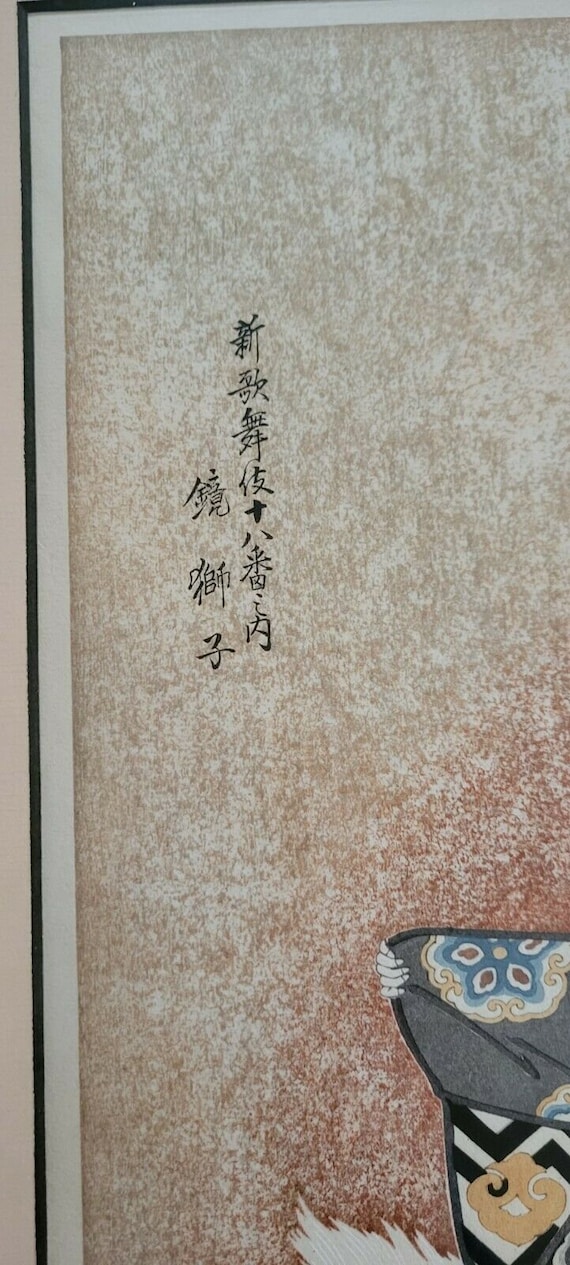 新歌舞伎十八番之内
鏡獅子